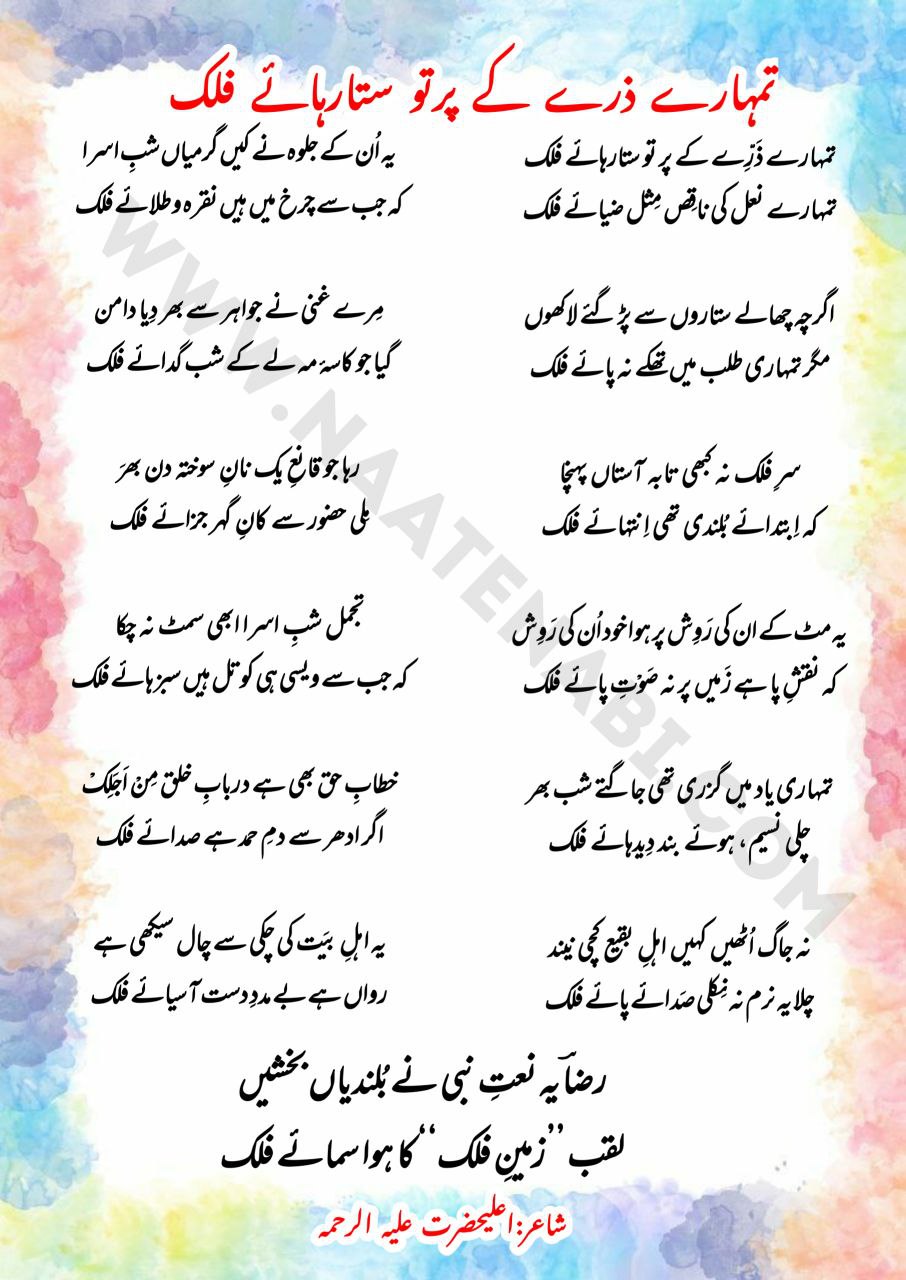 تمہارے ذرے کے پرتو ستارہائے فلک
تمہارے ذَرِّے کے پرتو ستارہائے فلک
تمہارے نعل کی ناقِص مِثل ضیائے فلک
اگرچہ چھالے ستاروں سے پڑ گئے لاکھوں
مگر تمہاری طلب میں تھکے نہ پائے فلک
سرِ فلک نہ کبھی تابہ آستاں پہنچا
کہ اِبتدائے بُلندی تھی اِنتہائے فلک
یہ مٹ کے ان کی رَوِش پر ہوا خود اُن کی رَوِش
کہ نقشِ پا ہے زَمیں پر نہ صَوْتِ پائے فلک
تمہاری یاد میں گزری تھی جاگتے شب بھر
چلی نسیم، ہوئے بند دِیدہائے فلک
نہ جاگ اُٹھیں کہیں اہلِ بقیع کچی نیند
چلا یہ نرم نہ نِکلی صَدائے پائے فلک
یہ اُن کے جلوہ نے کیں گرمیاں شبِ اسرا
کہ جب سے چرخ میں ہیں نقرہ و طلائے فلک
مِرے غنی نے جواہر سے بھر دِیا دامن
گیا جو کاسۂ مہ لے کے شب گدائے فلک
رہا جو قانعِ یک نانِ سوختہ دن بھرَ
مِلی حضور سے کانِ گہر جزائے فلک
تجمل شبِ اسرا ابھی سمٹ نہ چکا
کہ جب سے ویسی ہی کوتل ہیں سبزہائے فلک
خطابِ حق بھی ہے دربابِ خلق مِنْ اَجَلِکْ
اگر ادھر سے دمِ حمد ہے صدائے فلک
یہ اہلِ بیَت کی چکی سے چال سیکھی ہے
رواں ہے بے مددِ دست آسیائے فلک
رضاؔ یہ نعتِ نبی نے بُلندیاں بخشیں
لقب ’’زمینِ فلک‘‘ کا ہوا سمائے فلک
شاعر:اعلیحضرت علیہ الرحمہ
WWW.NAATENABI.COM